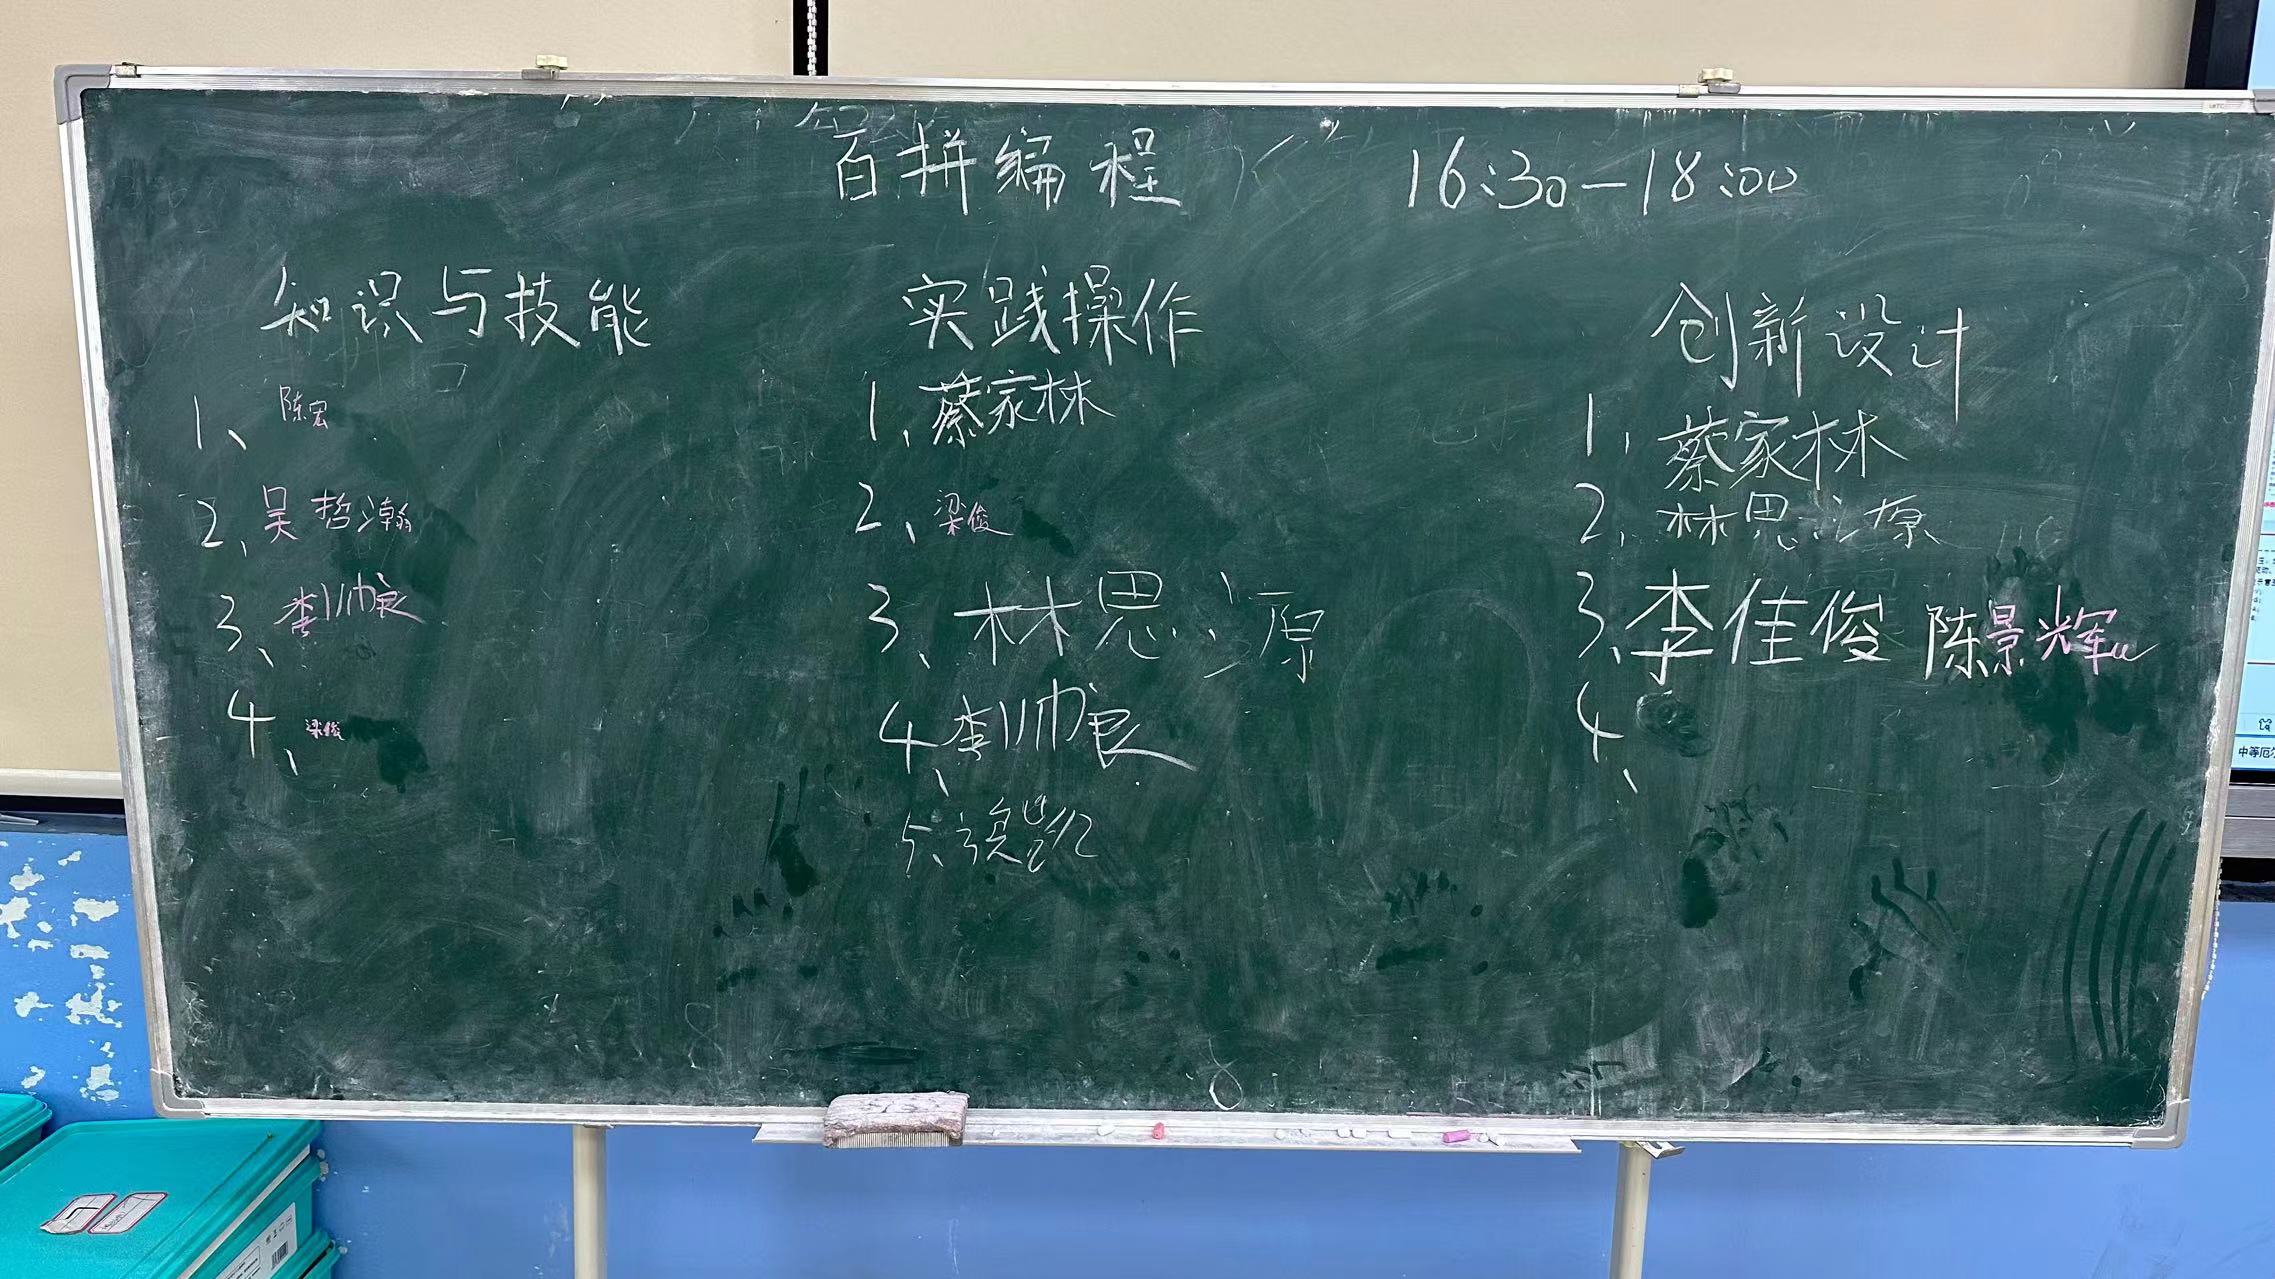 百拼编程 16:30-18:00
知识与技能
1、陈宏
2、吴哲瀚
3、李帅良
4、梁俊
实践操作
1、蔡家林
2、梁俊
3、林思源
4、李帅良
5、
创新设计
1、蔡家林
2、林思源
3、李佳俊 陈景辉
4、